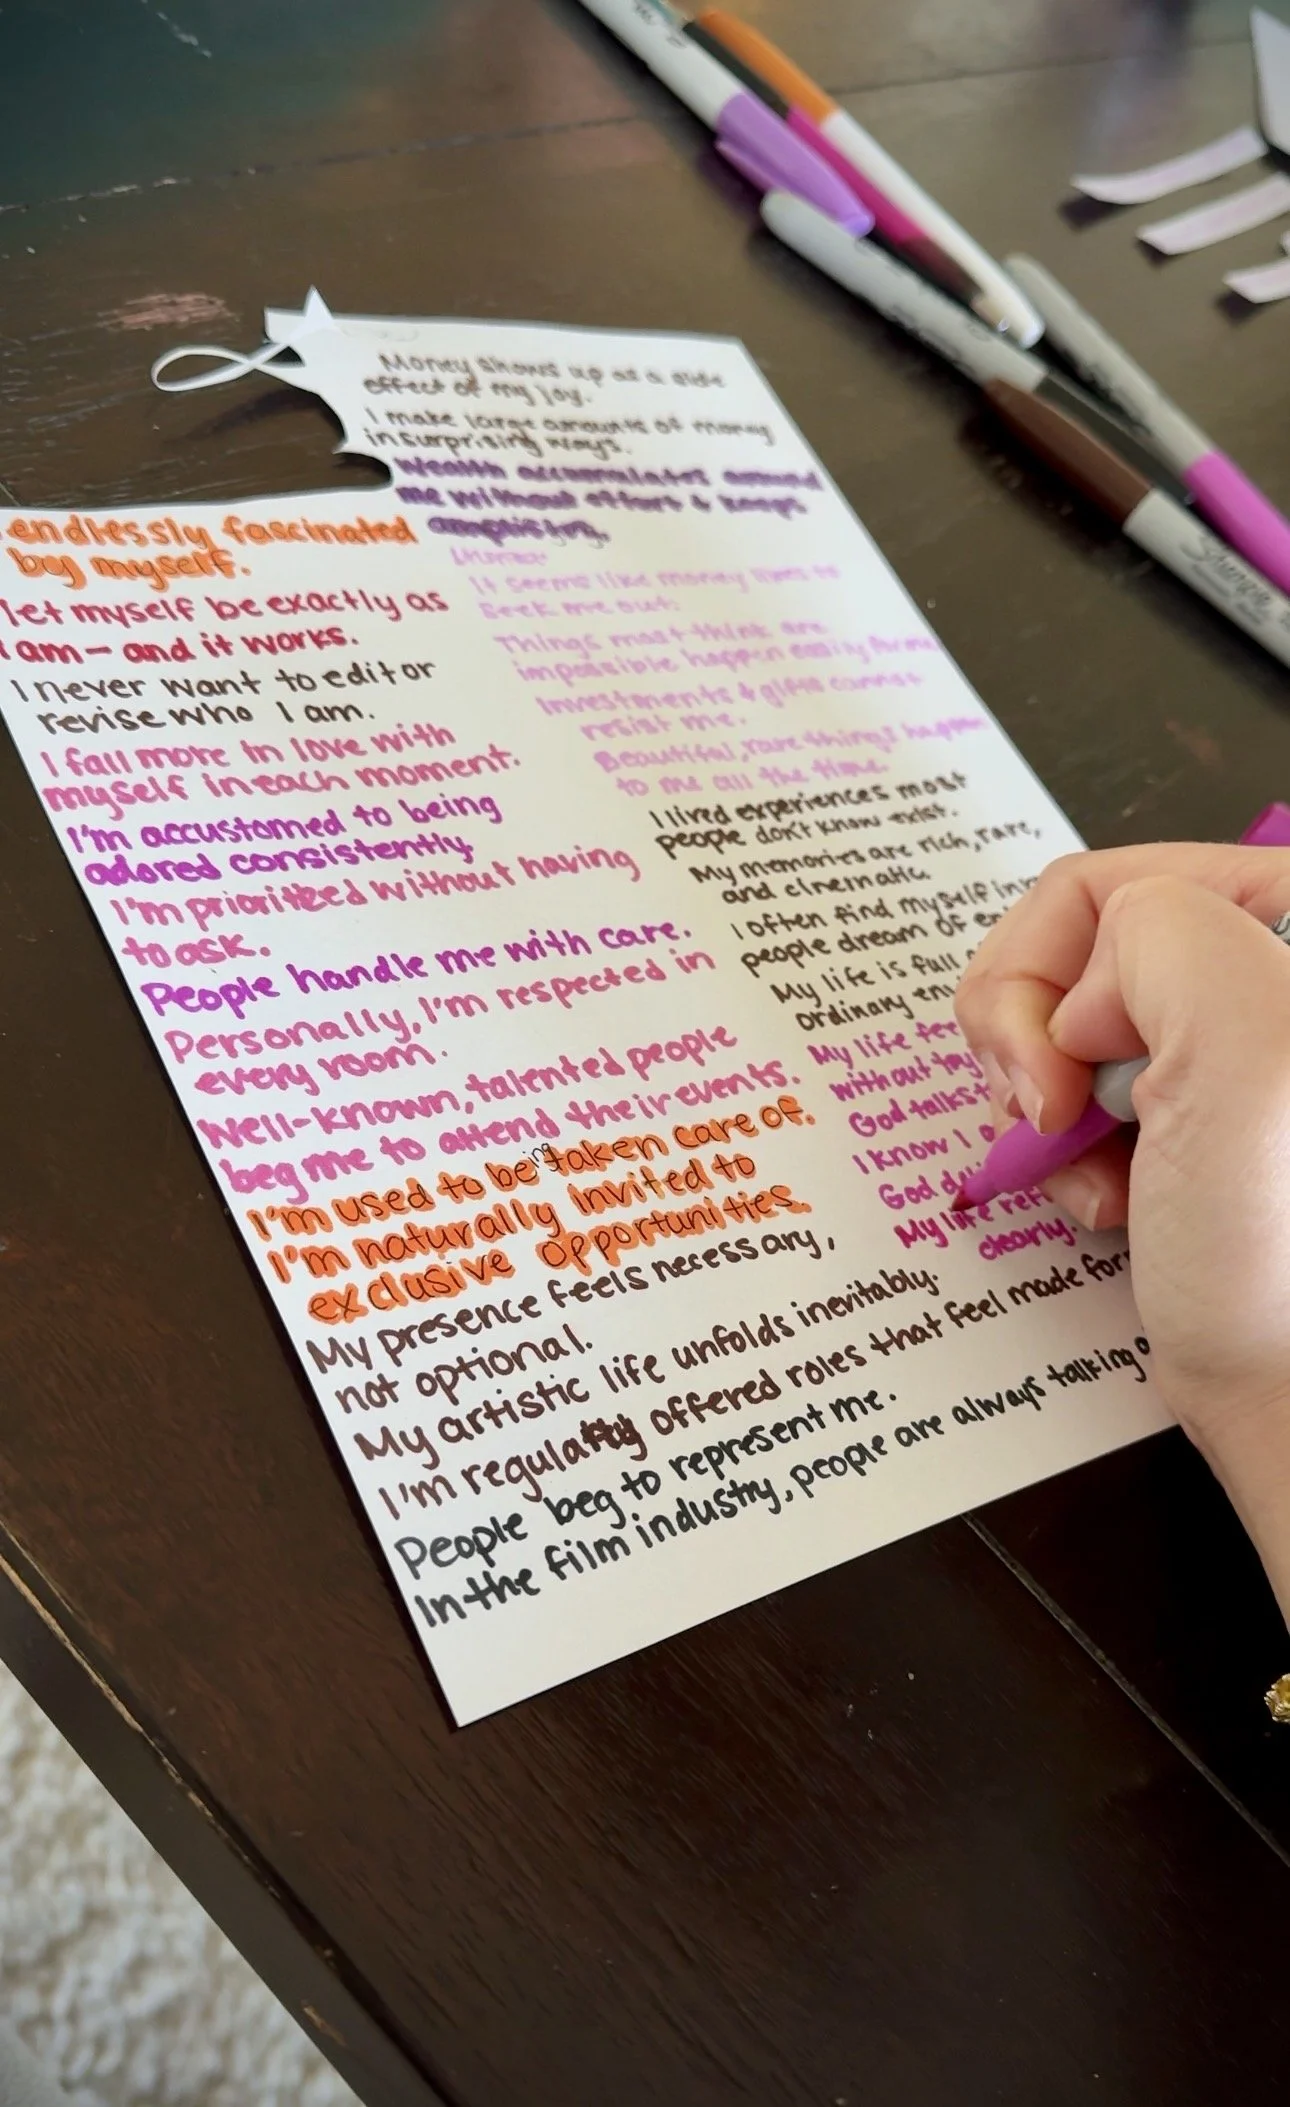 endlessly fascinated
by myself.
let myself be exactly as
I am— and it works.
I never want to edit or
revise who I am.
I fall more in love with
myself in each moment.
I'm accustomed to being
adored consistently.
I'm prioritized without having
to ask.
People handle me with care.
Personally, I'm respected in
every room.
Well-known, talented people
beg me to attend their events.
I'm used to being taken care of.
I'm naturally invited to
exclusive opportunities.
My presence feels necessary,
not optional.
My artistic life unfolds inevitably.
I'm regularly offered roles that feel made for
People beg to represent me.
In the film industry, people are always talking
Money shows up as a side
effect of my joy.
I make large amounts of money
in surprising ways.
Wealth accumulates around
me without effort & keeps
It seems like money likes to
seek me out.
Things most think are
impossible happen easily for me
Investments & gifts cannot
resist me.
Beautiful, rare things happen
to me all the time.
I lived experiences most
people don't know exist.
My memories are rich, rare,
and cinematic.
I often find myself in
people dream of
My life is full
ordinary
My life
without
God talks
I know I
God
My life
clearly.
Sharpie